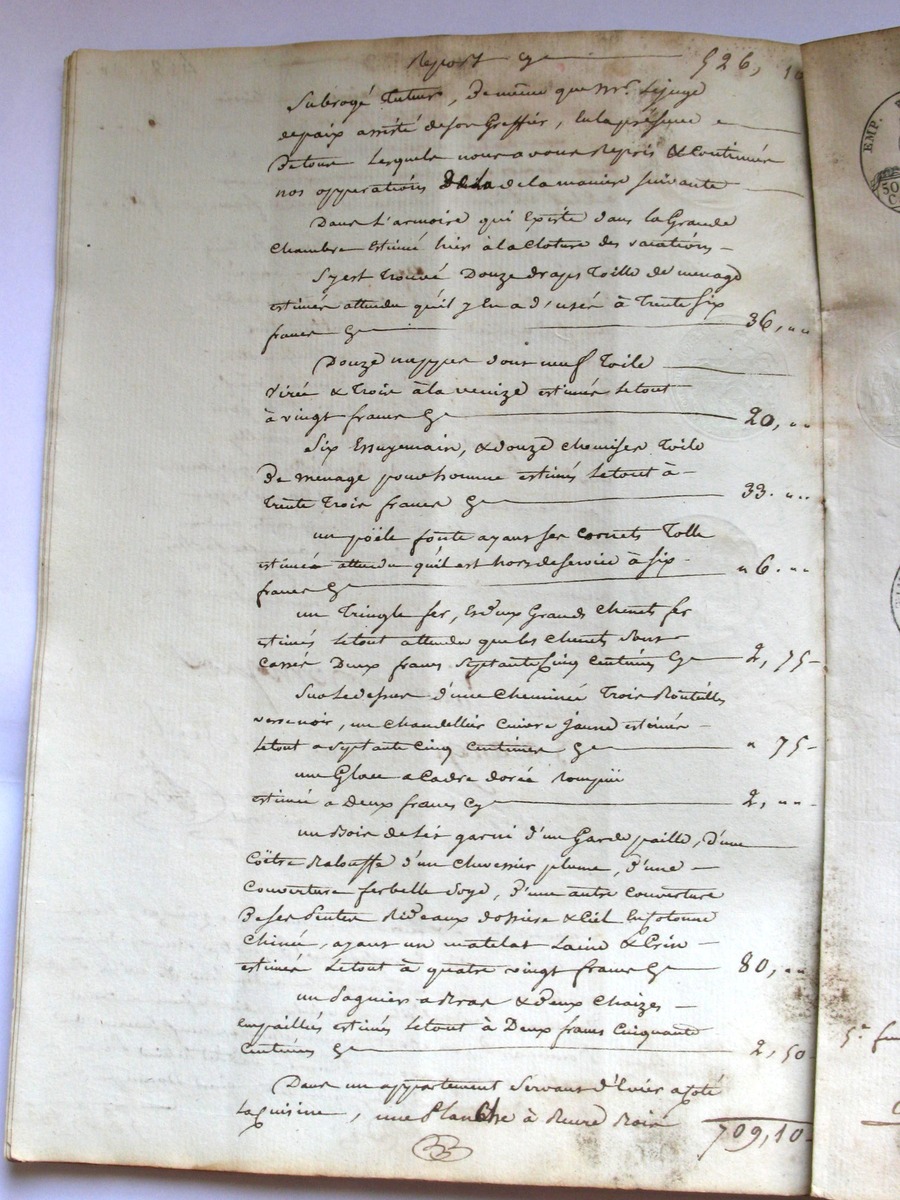 Report Cy 526, 10
Subrogé tuteur, De même que Mr. Lejuge
depaix assisté deson Greffier, En la présence
De tous Lesquels nous avons Repris & Continués
nos opperations de la maniere suivante
Dans L'armoire qui Existe dans la Grande
Chambre Estimé hier à la Cloture des vacations
S'y est trouvé Douze draps Toille de menage
estimés attendu qu'il y En a d'usés à Trente Six
francs Cy 36, ""
Douze nappes dont neuf Toile
& trois à la venize estimés Letout
à vingt francs Cy 20, ""
Six Essuyemain, & douze Chemises Toile
De menage pour homme estimés Letout à
Trente Trois francs Cy 33. ""
un poële fonte ayant ses cornets Tolle
estimée attendu qu'il est hors de service à six
francs Cy " 6. ""
un Tringle fer, Et deux Grands Chenets fer
estimés Letout attendu que les Chenets sont
Cassés Deux francs Septante Cinq Centimes Cy 2, 75
Sur Le dessus d'une Cheminée Trois Bouteilles
verre noir, un Chandellier Cuivre Jaune estimés
Letout a Septante Cinq Centimes Cy " 75
une Glace a Cadre dorée Rompüe
estimée a Deux francs Cy 2, ""
un Bois de Lit garni d'un Garde paille, d'une
Coëtre d'un Chevessier plume, d'une
Couverture soye, d'une autre Couverture
De ses pentes Rideaux dossier & Ciel En Cotonne
Chinée, ayant un matelat Laine & Crin
estimés Letout à quatre vingt francs Cy 80, ""
un a Bras & deux Chaizes
empaillés estimés Letout à Deux francs Cinquante
Centimes Cy 2, 50
Dans un appartement Servant d'Evier a Coté
La Cuisine, une Planche à Beure Bois
709, 10